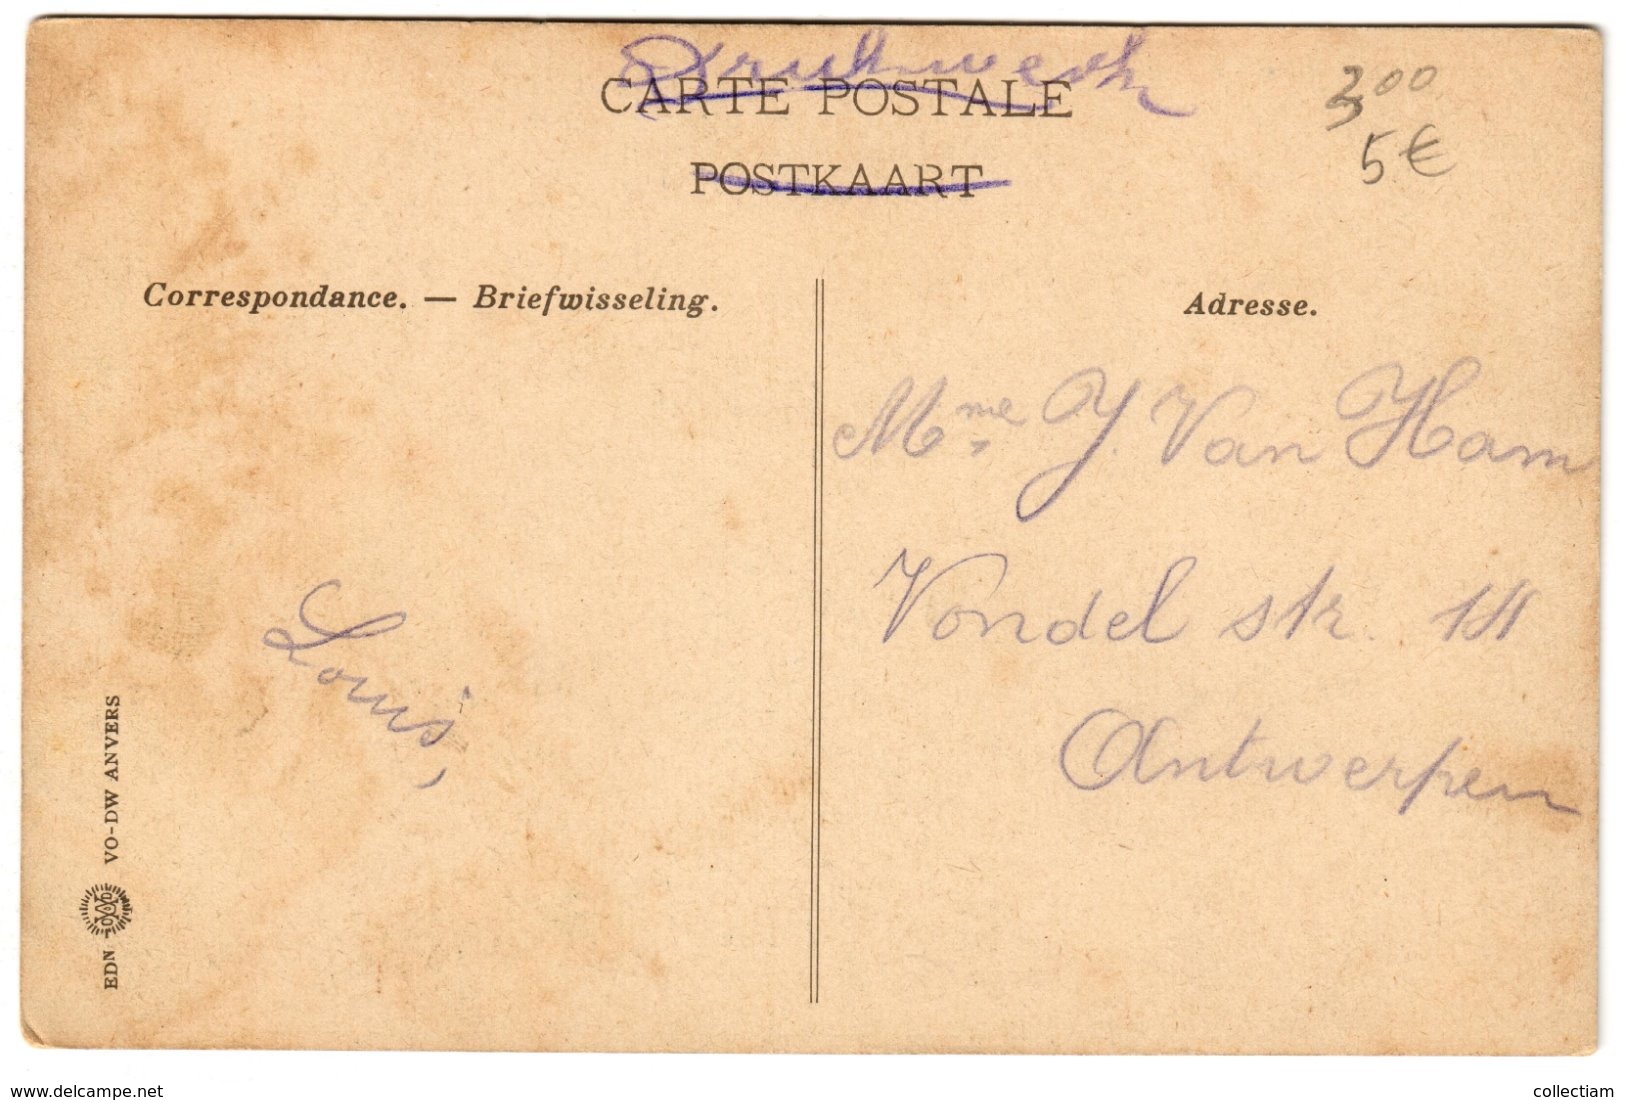 Drukwerk
CARTE POSTALE
POSTKAART
300
5€
Correspondance. — Briefwisseling.
Adresse.
Mme J. Van Ham
Vondel str.
Antwerpen
Louis,
EDN VO-DW ANVERS
www.delcampe.net
collectiam